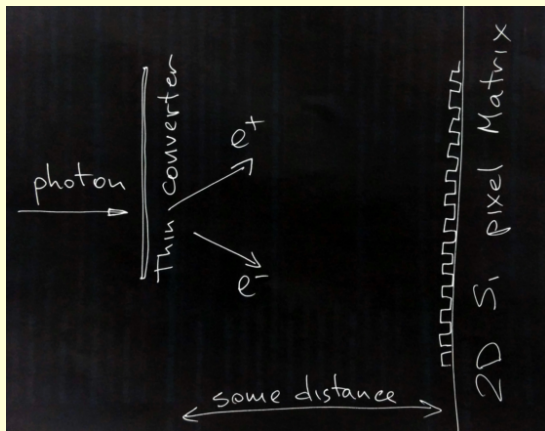 photon
Thin converter
e+
e-
some distance
2D Si pixel Matrix